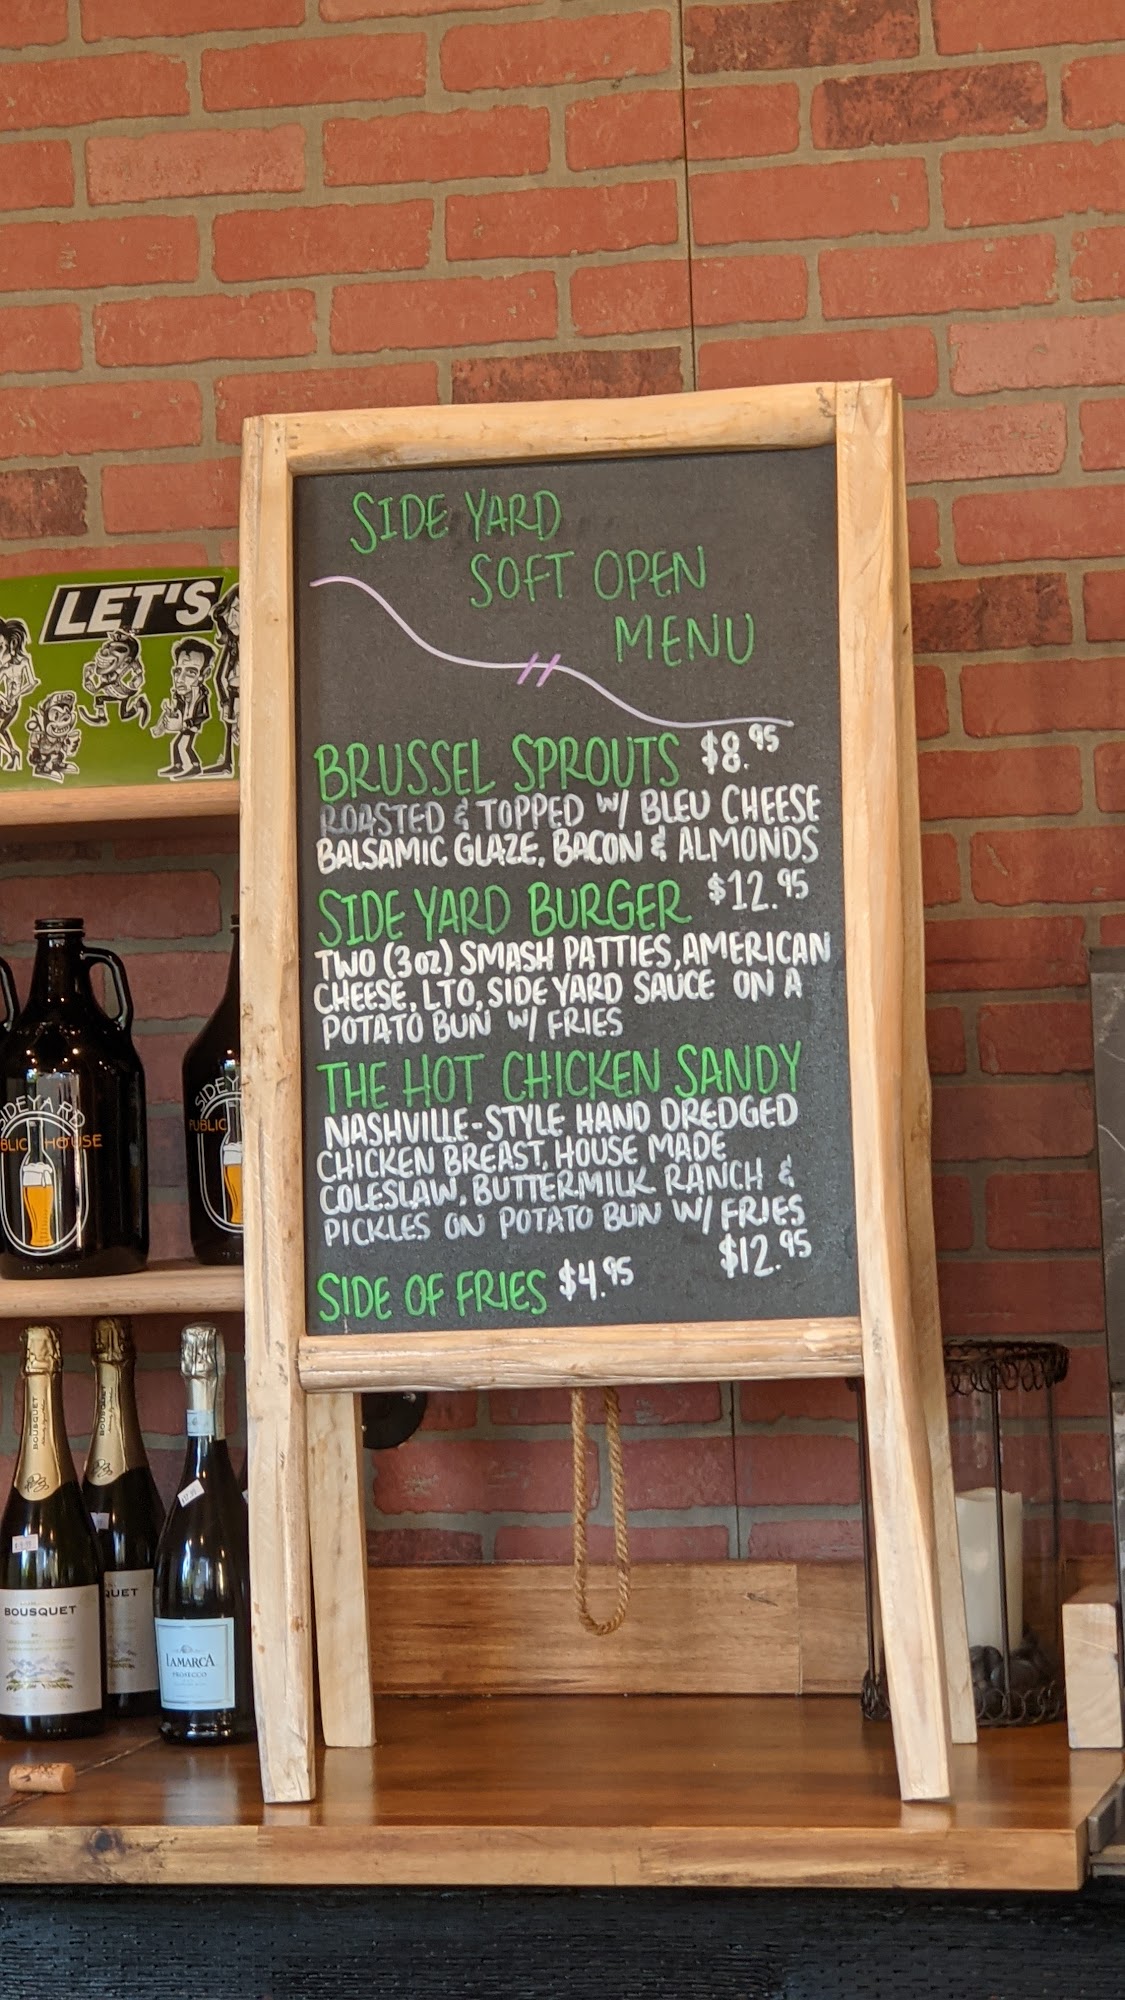 SIDE YARD
SOFT OPEN
MENU
BRUSSEL SPROUTS $8.95
ROASTED & TOPPED W/ BLEU CHEESE
BALSAMIC GLAZE, BACON & ALMONDS
SIDE YARD BURGER $12.95
TWO (3oz) SMASH PATTIES, AMERICAN
CHEESE, LTO, SIDE YARD SAUCE ON A
POTATO BUN W/ FRIES
THE HOT CHICKEN SANDY
NASHVILLE-STYLE HAND DREDGED
CHICKEN BREAST, HOUSE MADE
COLESLAW, BUTTERMILK RANCH &
PICKLES ON POTATO BUN W/ FRIES
$12.95
SIDE OF FRIES $4.95
LET'S
SIDEYARD
BLIC HOUSE
SIDEY
PUBLIC
BOUSQUET
BOUSQUET
BOUSQUET
QUET
LAMARCA
PROSECCO